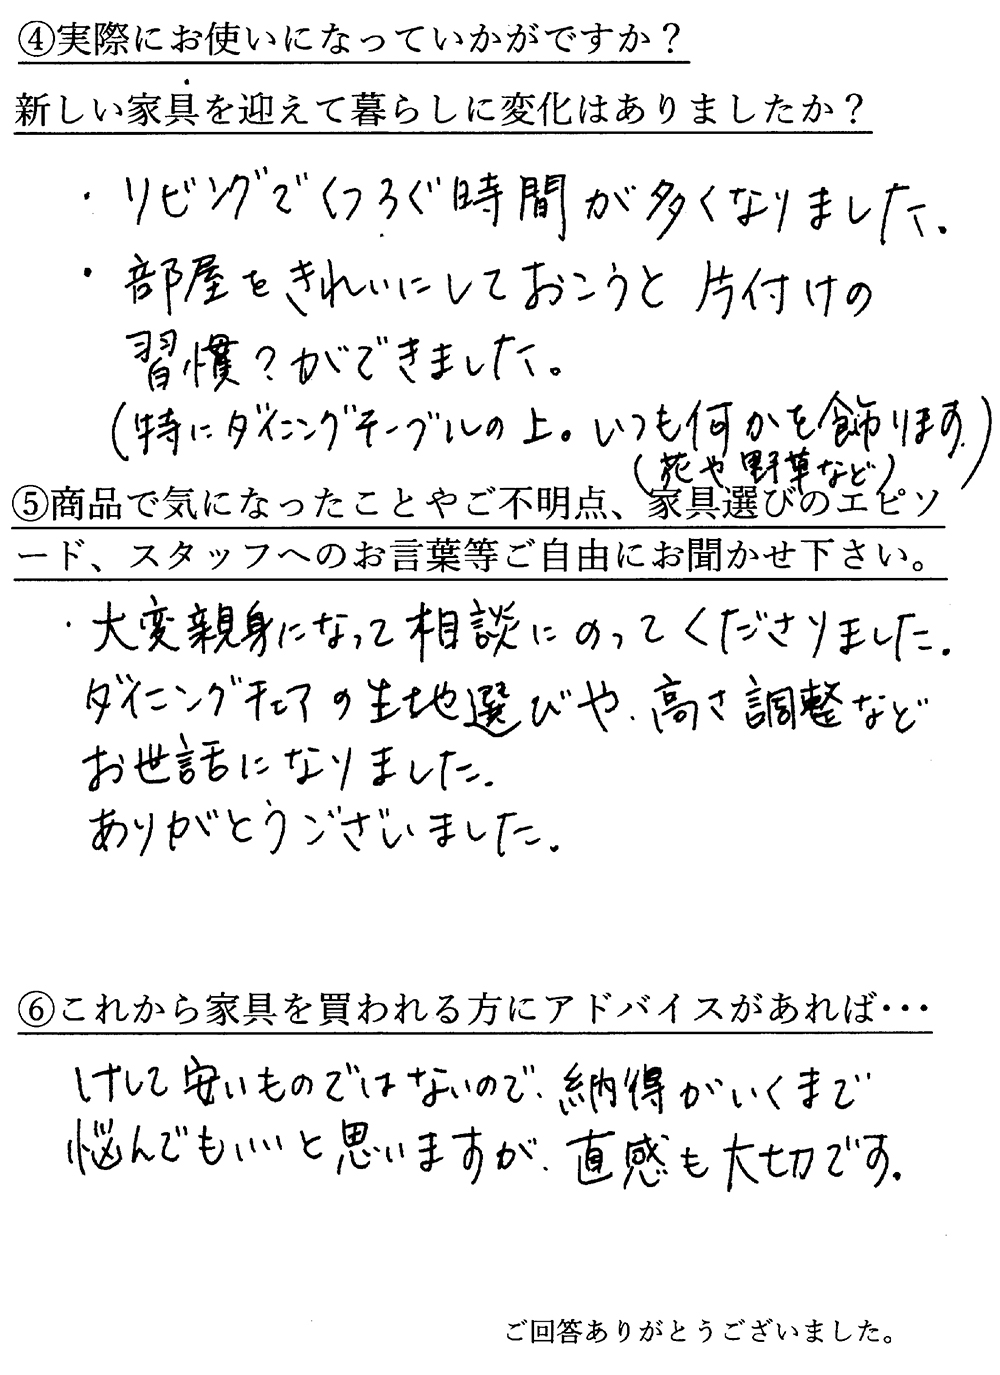 ④実際にお使いになっていかがですか？
新しい家具を迎えて暮らしに変化はありましたか？
・リビングでくつろぐ時間が多くなりました.
・部屋をきれいにしておこうと片付けの
習慣？ができました。
(特にダイニングテーブルの上。いつも何かを飾ります.)
(花や野草など)
⑤商品で気になったことやご不明点、家具選びのエピソ
ード、スタッフへのお言葉等ご自由にお聞かせ下さい。
・大変親身になって相談にのってくださりました.
ダイニングチェアの生地選びや、高さ調整など
お世話になりました.
ありがとうございました.
⑥これから家具を買われる方にアドバイスがあれば･･･
けして安いものではないので、納得がいくまで
悩んでもいいと思いますが、直感も大切です.
ご回答ありがとうございました。